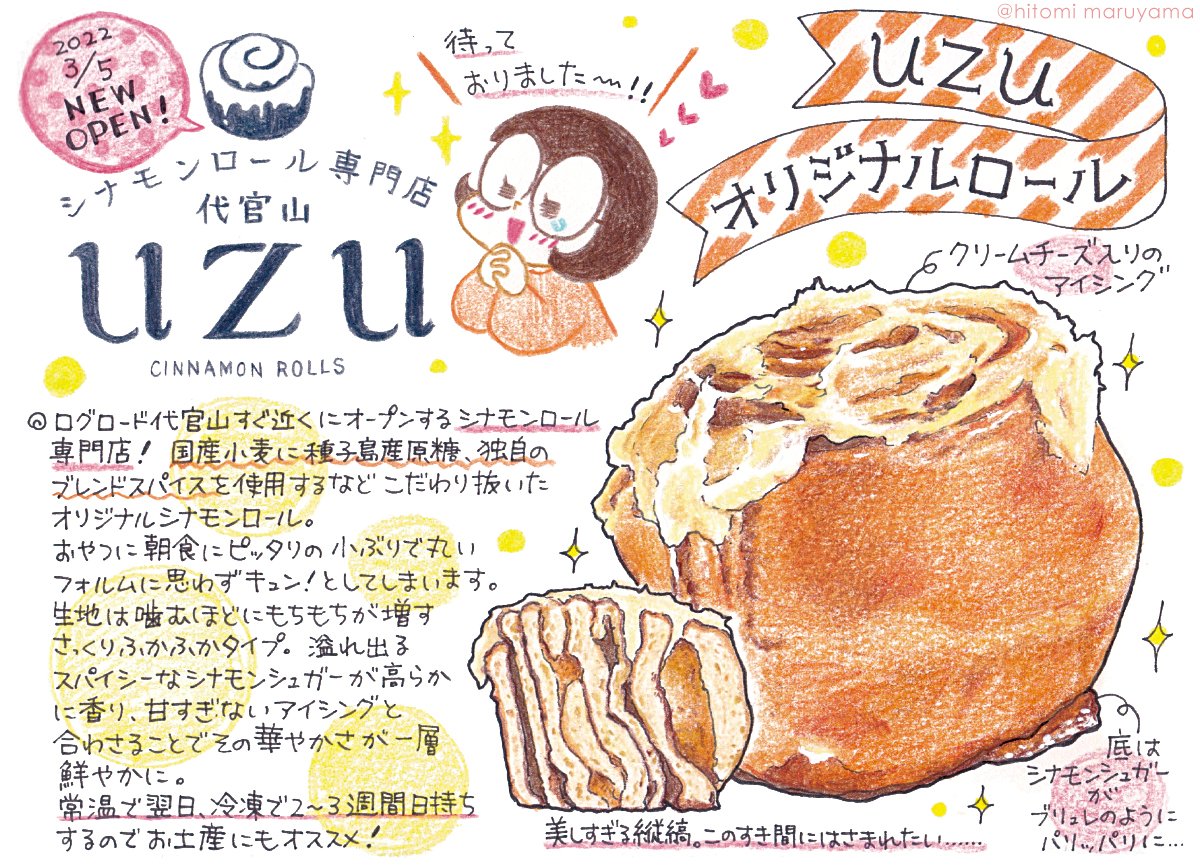 @hitomi maruyama
2022
3/5
NEW
OPEN!
シナモンロール専門店
代官山
uzu
CINNAMON ROLLS
待って
おりました〜!!
uzu
オリジナルロール
クリームチーズ入りの
アイシング
◎ログロード代官山すぐ近くにオープンするシナモンロール
専門店! 国産小麦に種子島産原糖、独自の
ブレンドスパイスを使用するなどこだわり抜いた
オリジナルシナモンロール。
おやつに朝食にピッタリの小ぶりで丸い
フォルムに思わずキュン!としてしまいます。
生地は噛むほどにもちもちが増す
さっくりふかふかタイプ。溢れ出る
スパイシーなシナモンシュガーが高らか
に香り、甘すぎないアイシングと
合わさることでその華やかさが一層
鮮やかに。
常温で翌日、冷凍で2〜3週間日持ち
するのでお土産にもオススメ!
美しすぎる縦縞。このすき間にはさまれたい……
底は
シナモンシュガー
が
ブリュレのように
パリッパリに…